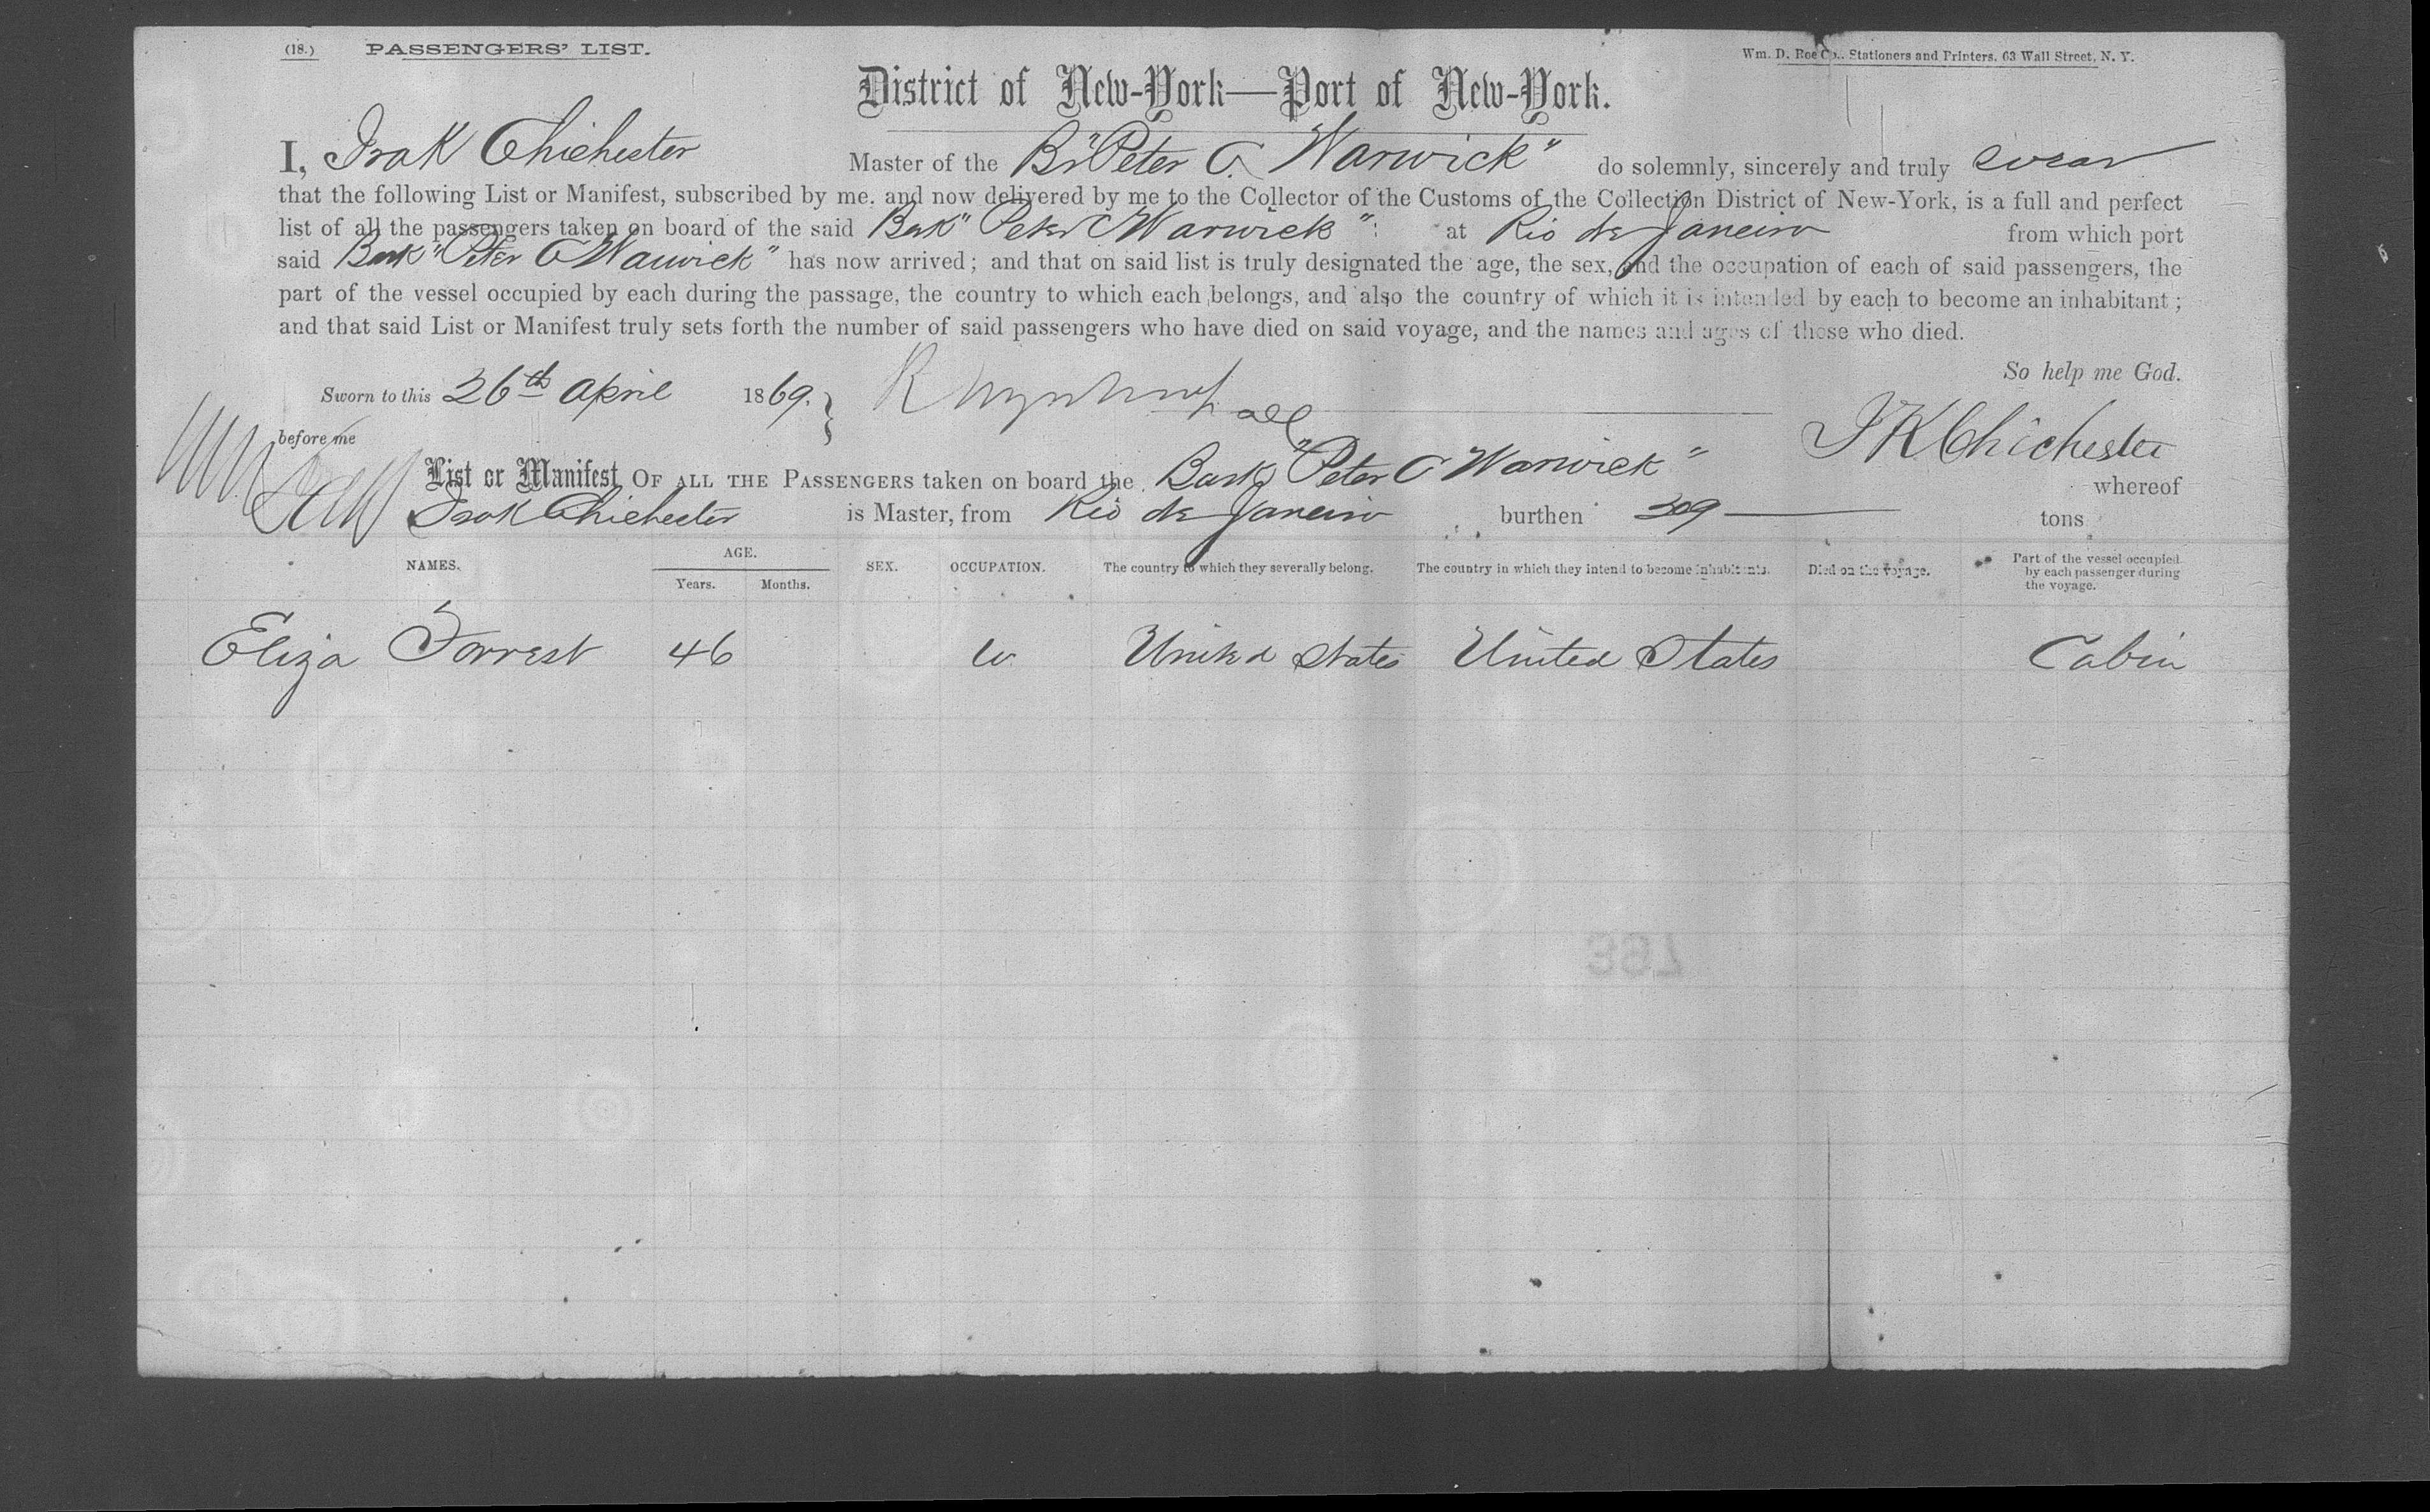 (18.) PASSENGERS' LIST.
Wm. D. Roe Co., Stationers and Printers, 63 Wall Street, N. Y.
District of New-York—Port of New-York.
I, Isak Chichester Master of the Bk "Peter C. Warwick" do solemnly, sincerely and truly swear
that the following List or Manifest, subscribed by me, and now delivered by me to the Collector of the Customs of the Collection District of New-York, is a full and perfect
list of all the passengers taken on board of the said Bark "Peter C Warwick" at Rio de Janeiro from which port
said Bark "Peter C Warwick" has now arrived; and that on said list is truly designated the age, the sex, and the occupation of each of said passengers, the
part of the vessel occupied by each during the passage, the country to which each belongs, and also the country of which it is intended by each to become an inhabitant;
and that said List or Manifest truly sets forth the number of said passengers who have died on said voyage, and the names and ages of those who died.
So help me God.
Sworn to this 26th April 1869. }
before me
I K Chichester
List or Manifest OF ALL THE PASSENGERS taken on board the Bark "Peter C Warwick" whereof
Isak Chichester is Master, from Rio de Janeiro burthen 309 tons
NAMES. AGE. Years. Months. SEX. OCCUPATION. The country to which they severally belong. The country in which they intend to become inhabitants. Died on the voyage. Part of the vessel occupied by each passenger during the voyage.
Eliza Forrest 46 United States United States Cabin
397